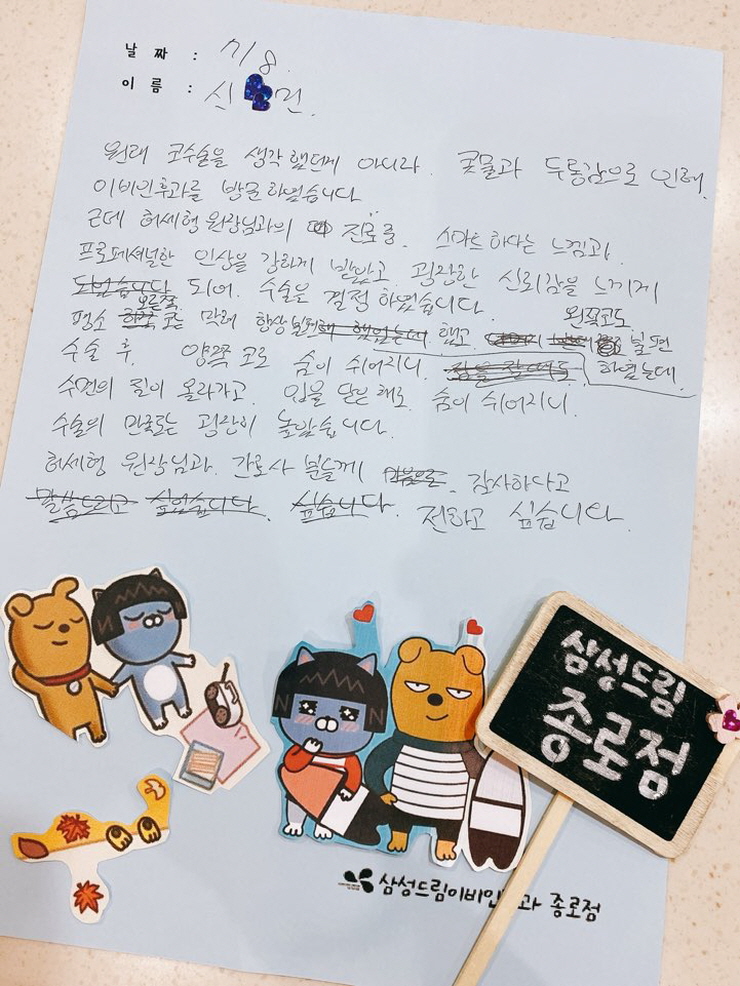 날 짜 : 7/8.
이 름 : 신 민.
원래 코수술을 생각했던게 아니라. 콧물과 두통감으로 인해.
이비인후과를 방문하였습니다
근데 허세형 원장님과의 진료중. 스마트하다는 느낌과.
프로페셔널한 인상을 강하게 받았고 굉장한 신뢰감을 느끼게
되어. 수술을 결정하였습니다.
오른쪽 왼쪽코도
평소 코는 막혀 항상 불편 했고 불편
수술 후 양쪽 코로 숨이 쉬어지니. 하였는데.
수면의 질이 올라가고 입을 닫은 채로 숨이 쉬어지니.
수술의 만족도는 굉장히 높았습니다.
허세형 원장님과 간호사 분들께 감사하다고
전하고 싶습니다.
삼성드림
종로점
삼성드림이비인 과 종로점